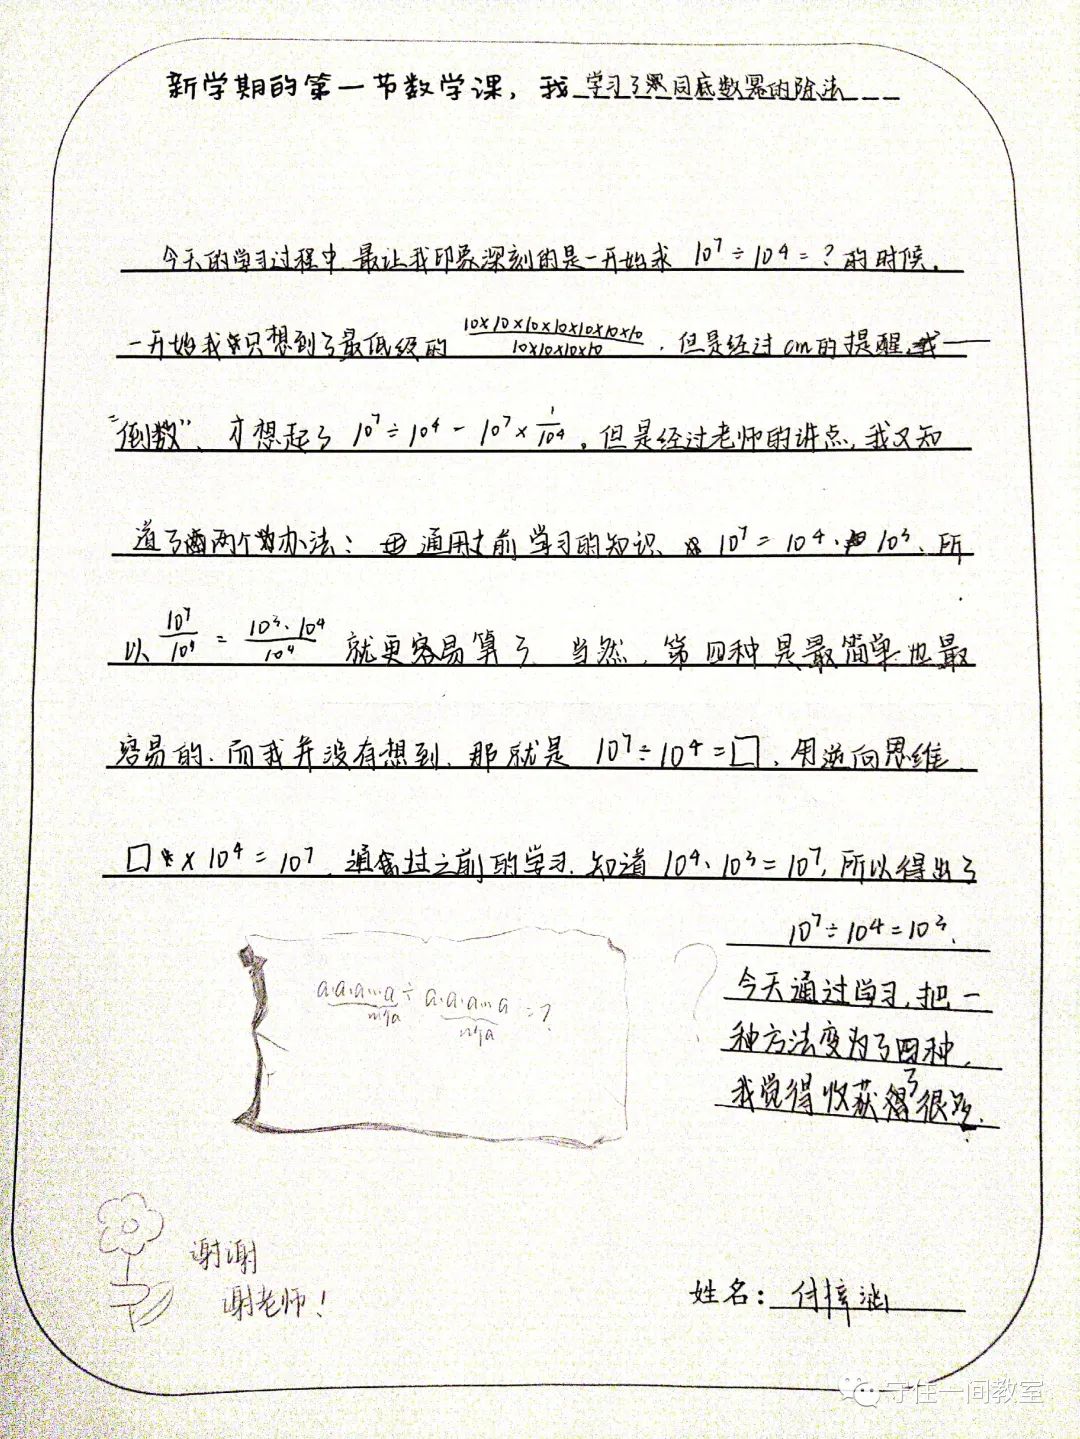 新学期的第一节数学课，我学习了同底数幂的除法
今天的学习过程中，最让我印象深刻的是一开始求 10⁷÷10⁴=？的时候，
一开始我只想到了最低级的 10×10×10×10×10×10×10×10/10×10×10×10，但是经过cm的提醒，
“倒数”，才想起了 10⁷÷10⁴-10⁷×1/10⁴。但是经过老师的讲点，我又知
道了两个办法：通用之前学习的知识，10⁷=10⁴·10³，所
以 10⁷/10⁴=10³·10⁴/10⁴ 就更容易算了，当然，第四种是最简单也最
容易的，而我并没有想到，那就是 10⁷÷10⁴=□，用逆向思维
□×10⁴=10⁷，通过之前的学习，知道10⁴·10³=10⁷，所以得出了
10⁷÷10⁴=10³.
今天通过学习，把一
种方法变为了四种，
我觉得收获了很多.
a·a·a…a÷a·a·a…a=?
m个a n个a
?
谢谢
谢老师！
姓名：付梓涵
守住一间教室